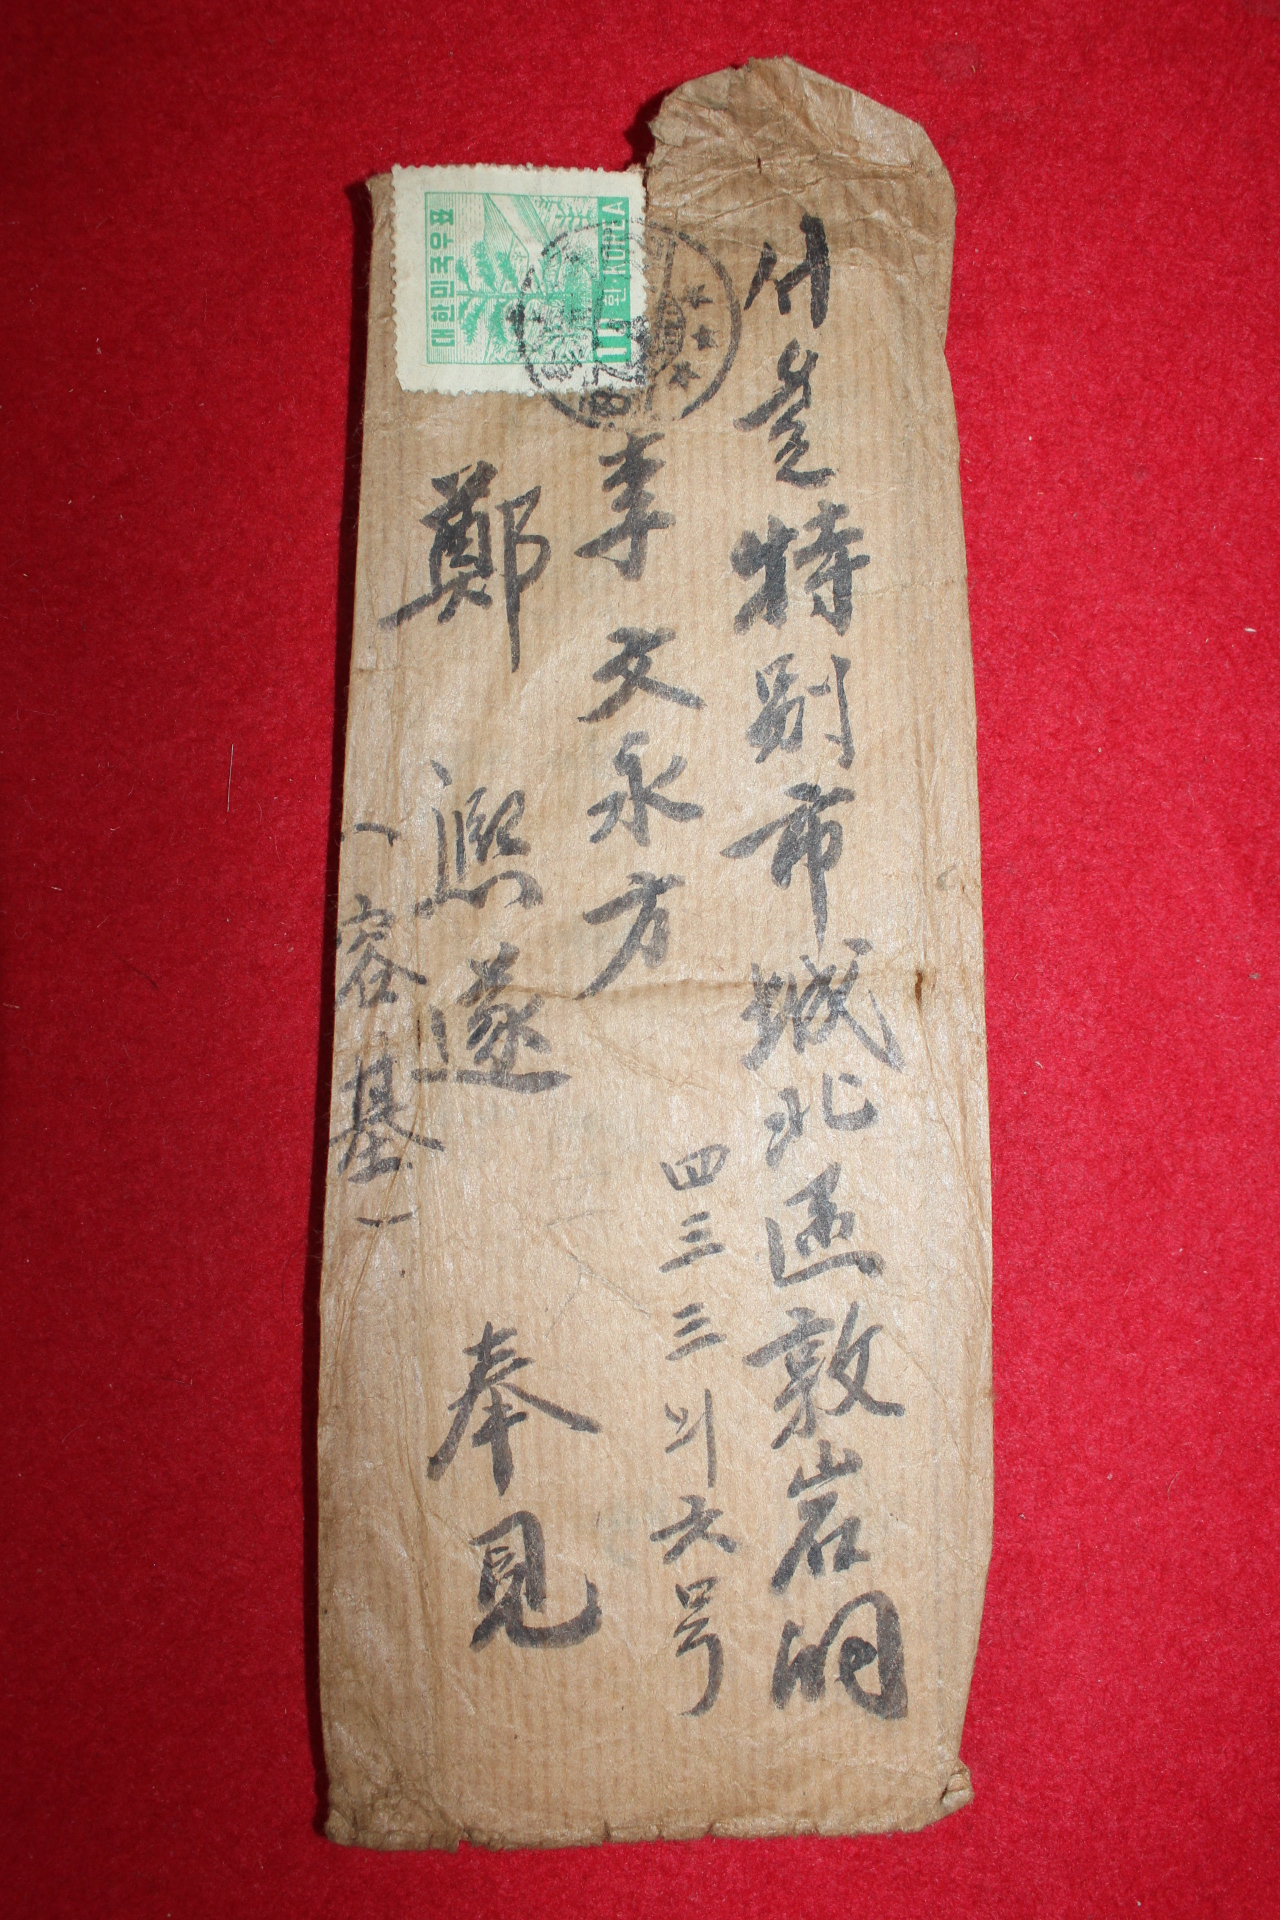 서울特別市城北區敦岩洞
四三三의六号
李文永方
鄭熙遂 奉見
(容基)
대한민국우표
10환·KOREA